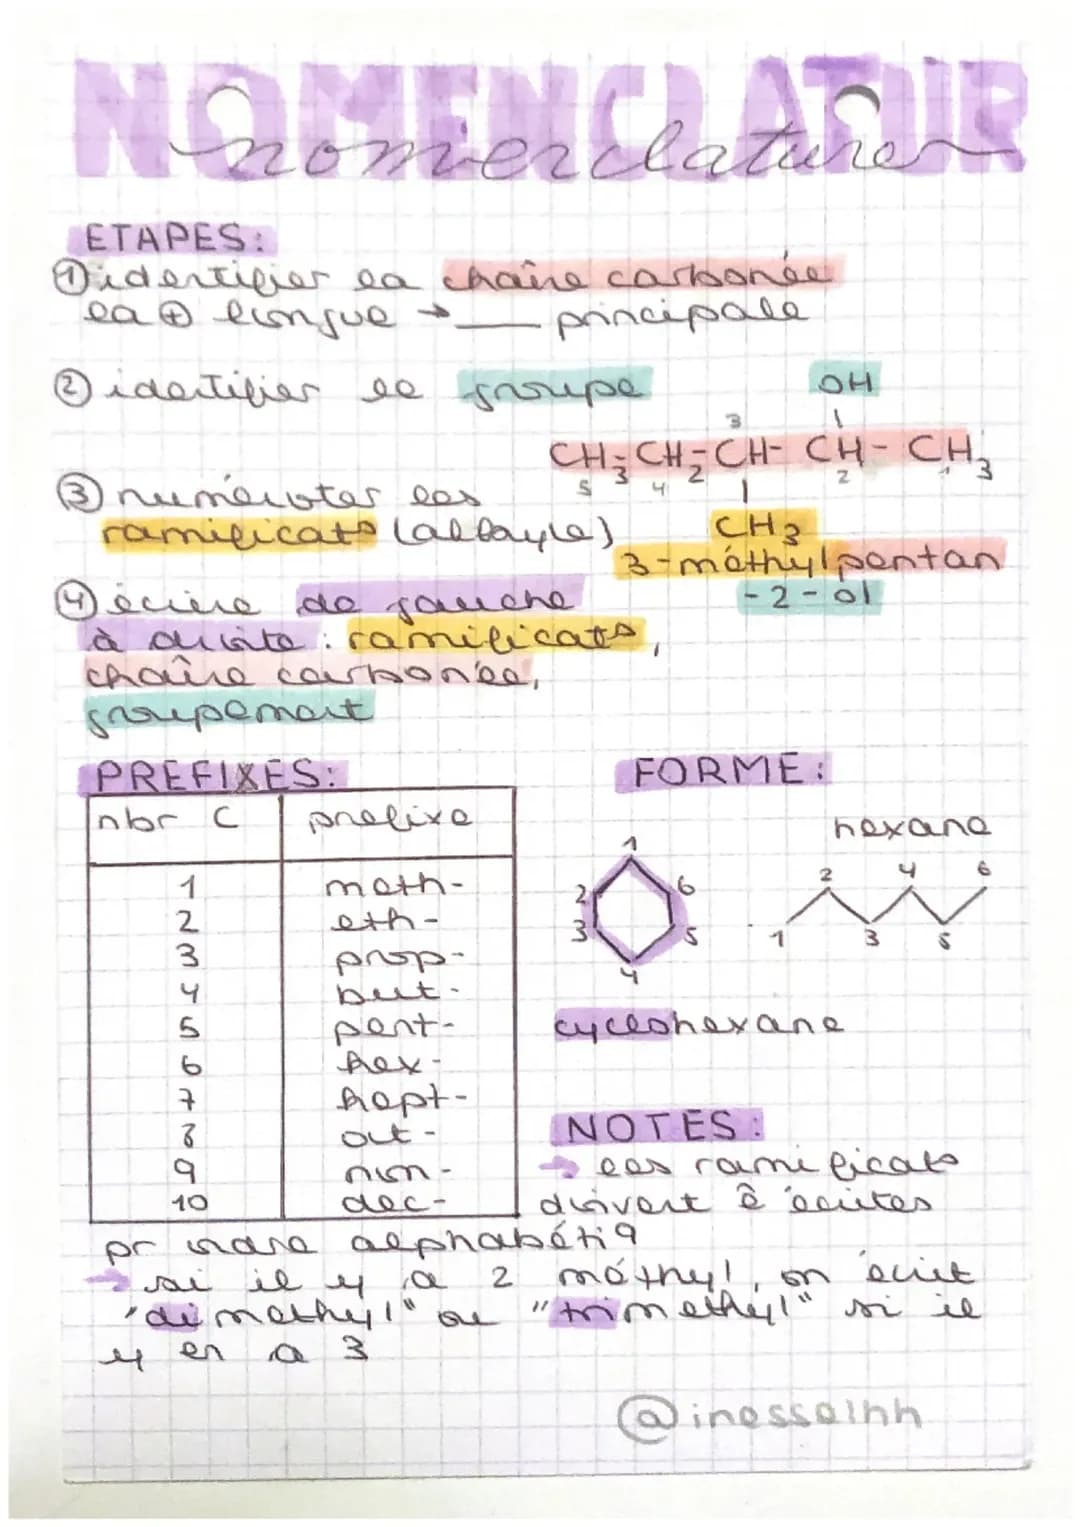 NOMENCLATUR
nomenclature
ETAPES:
① identifier la chaîne carbonée
la ⊕ longue → __ principale
② identifier le groupe
OH
3
CH3-CH2-CH-CH-CH3
5 4 2 1
③ numéroter les
ramificat° (alkyle)
CH3
3-méthylpentan
-2-ol
④ écrire de gauche
à droite : ramificat°,
chaîne carbonée,
groupement
PREFIXES:
nbr C prefixe
1 meth-
2 eth-
3 prop-
4 but-
5 pent-
6 hex-
7 hept-
8 oct-
9 non-
10 dec-
FORME:
hexane
1 2 3 4 5 6
1 2 3 4 5 6
cyclohexane
NOTES:
→ les ramificat°
doivent ê écrites
pr ordre alphabétiq
→ si il y a 2 méthyl, on écrit
"dimethyl" ou "trimethyl" si il
y en a 3
@inesselhh